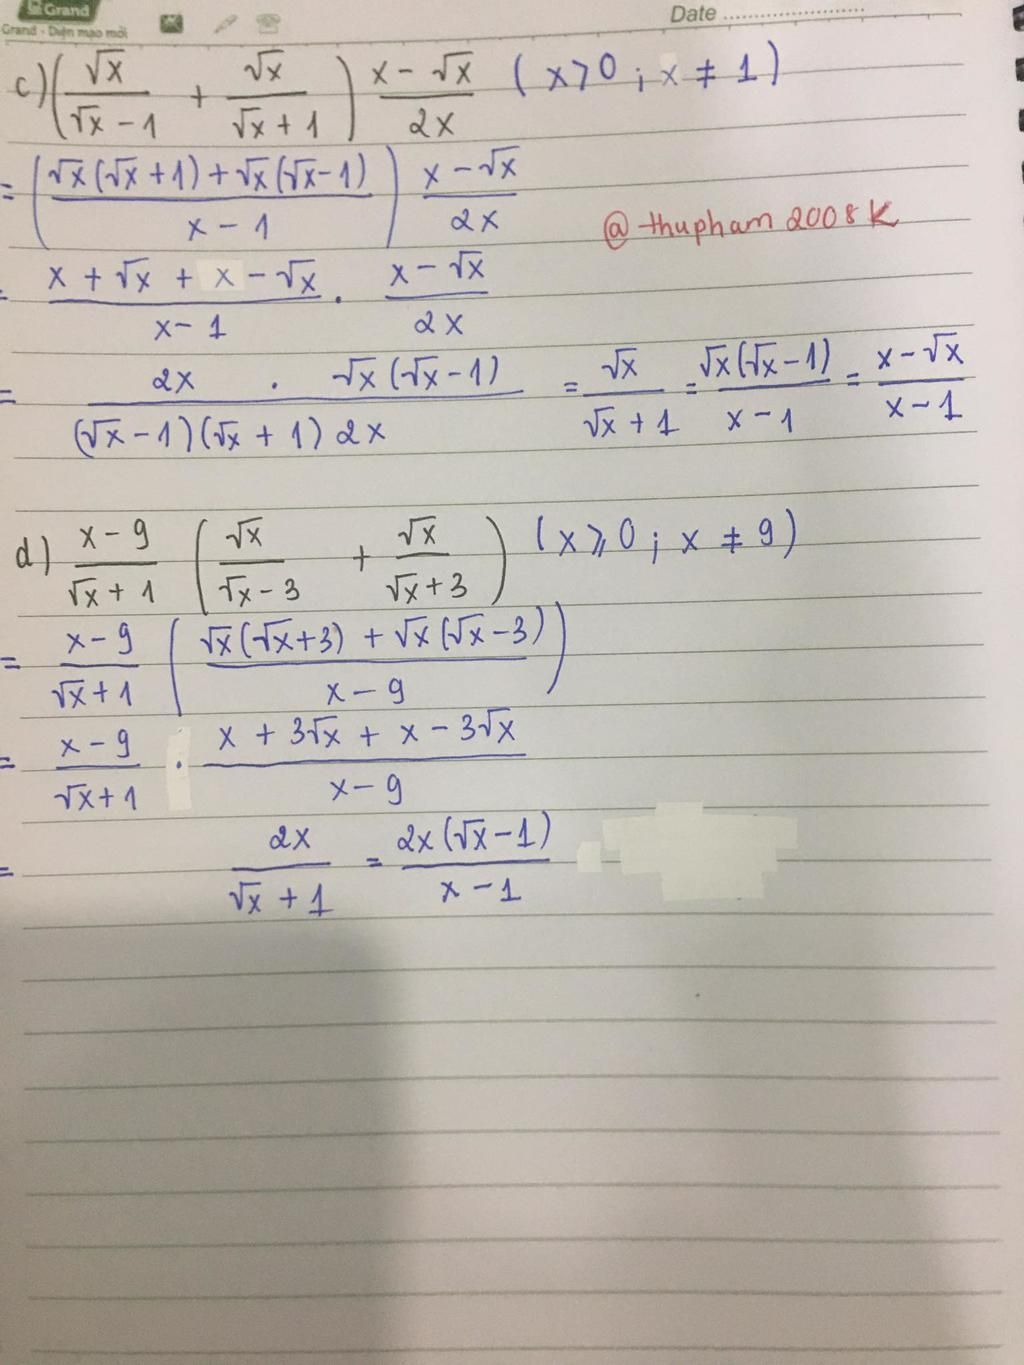 Grand
Grand - Diện mạo mới
Date ........................
c) (√x/(√x - 1) + √x/(√x + 1)) (x - √x)/2x (x > 0 ; x ≠ 1)
= ((√x(√x + 1) + √x(√x - 1))/(x - 1)) (x - √x)/2x
@thupham2008k
= (x + √x + x - √x)/(x - 1) . (x - √x)/2x
= (2x . √x(√x - 1))/((√x - 1)(√x + 1) 2x) = √x/(√x + 1) = √x(√x - 1)/(x - 1) = (x - √x)/(x - 1)
d) (x - 9)/(√x + 1) (√x/(√x - 3) + √x/(√x + 3)) (x ⩾ 0 ; x ≠ 9)
= (x - 9)/(√x + 1) ((√x(√x + 3) + √x(√x - 3))/(x - 9))
= (x - 9)/(√x + 1) . (x + 3√x + x - 3√x)/(x - 9)
= 2x/(√x + 1) = 2x(√x - 1)/(x - 1)